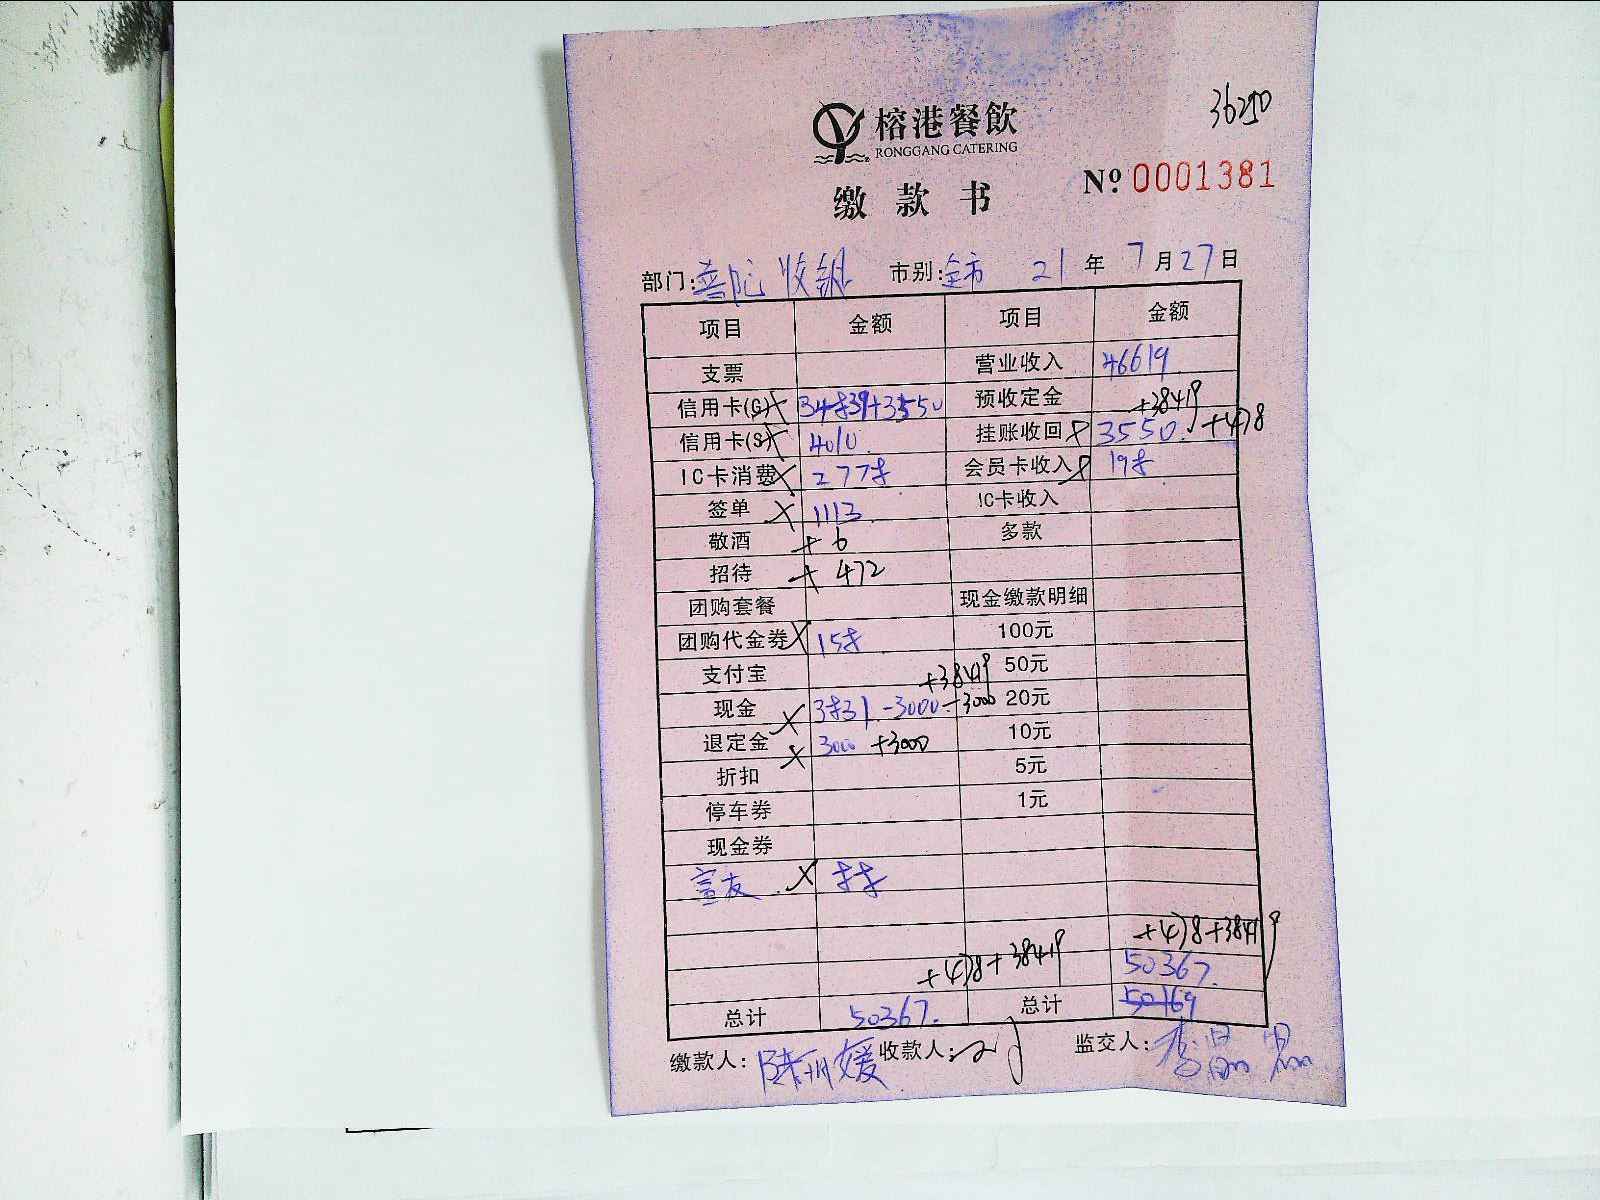 榕港餐飲
RONGGANG CATERING
36250
缴款书
Nº 0001381
部门: 普陀 收银 市别: 全市 21 年 7 月 27 日
项目 金额 项目 金额
支票 营业收入 46619.
信用卡(G) 34839+3550 预收定金 +38419
信用卡(S) 4010. 挂账收回 3550. +478
IC卡消费 2778 会员卡收入 198
签单 1113. IC卡收入
敬酒 + 6 多款
招待 + 472
团购套餐 现金缴款明细
团购代金券 158 100元
支付宝 +38419 50元
现金 3831.-3000.-3000 20元
退定金 3000 +3000 10元
折扣 5元
停车券 1元
现金券
88
+478+38419
+478+38419 50367.
总计 50367. 总计 50169
缴款人: 陆丽媛 收款人: 监交人: